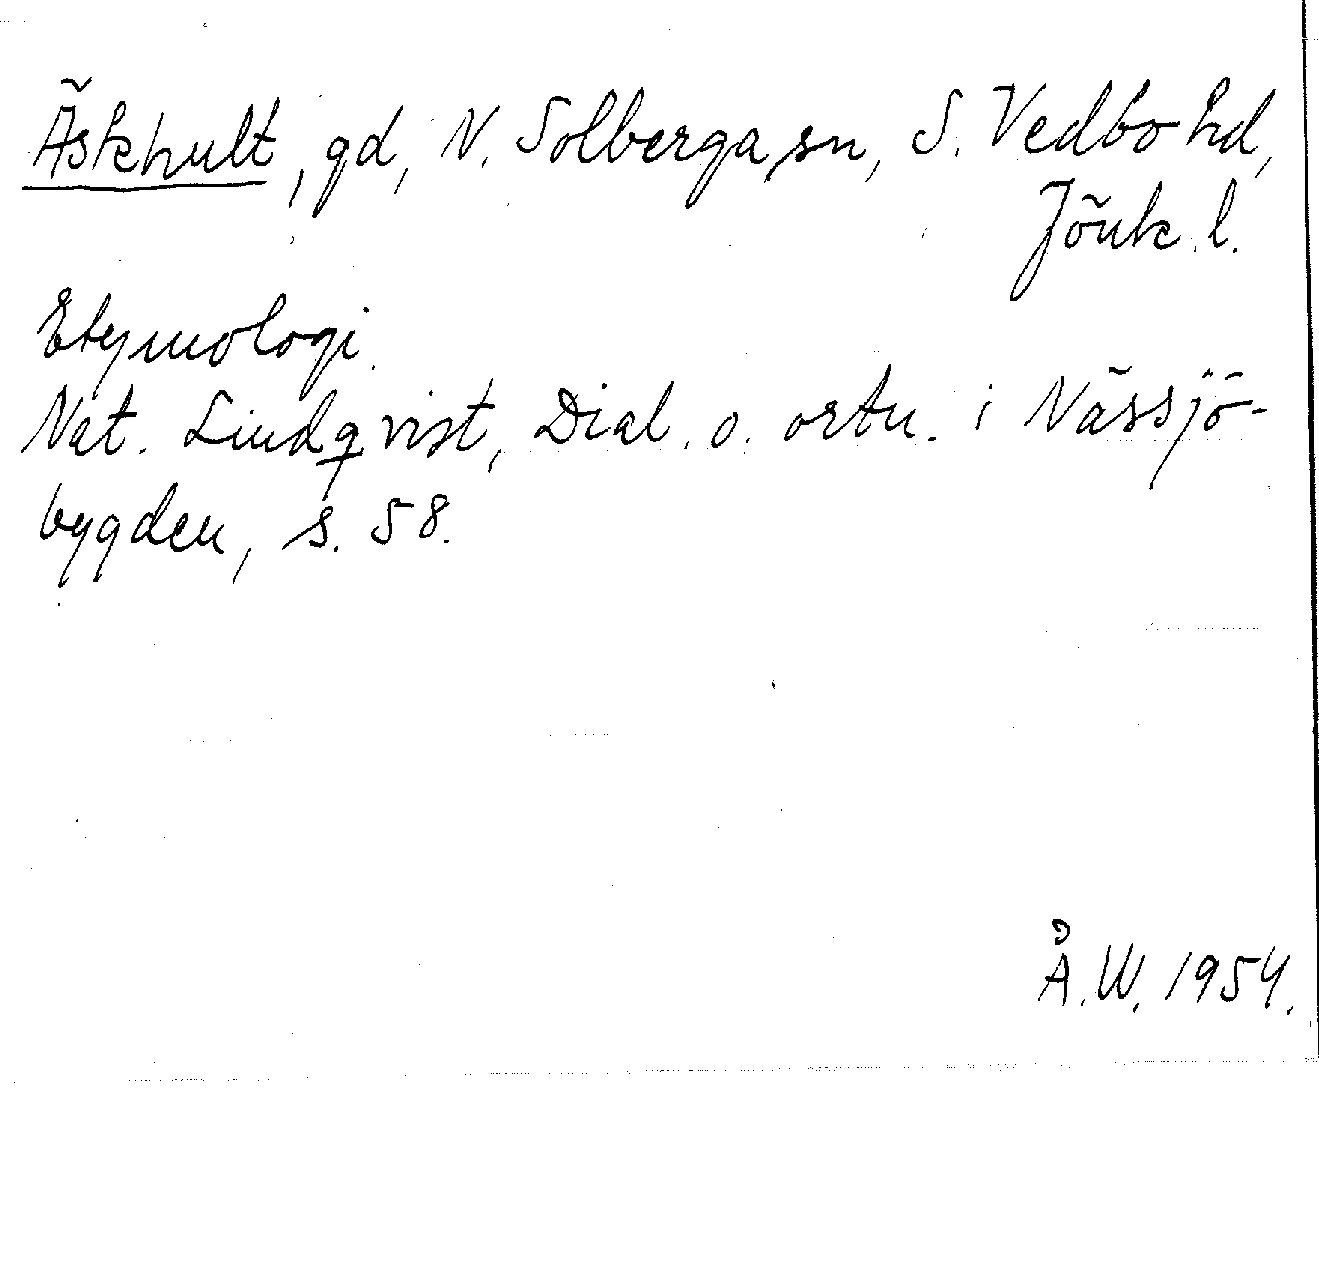 Äskhult, gd, N. Solberga sn, S. Vedbo hd,
Jönk. l.
Etymologi.
Nat. Lindqvist, Dial. o. ortn. i Nässjö-
bygden, s. 58.
Å.W. 1954.